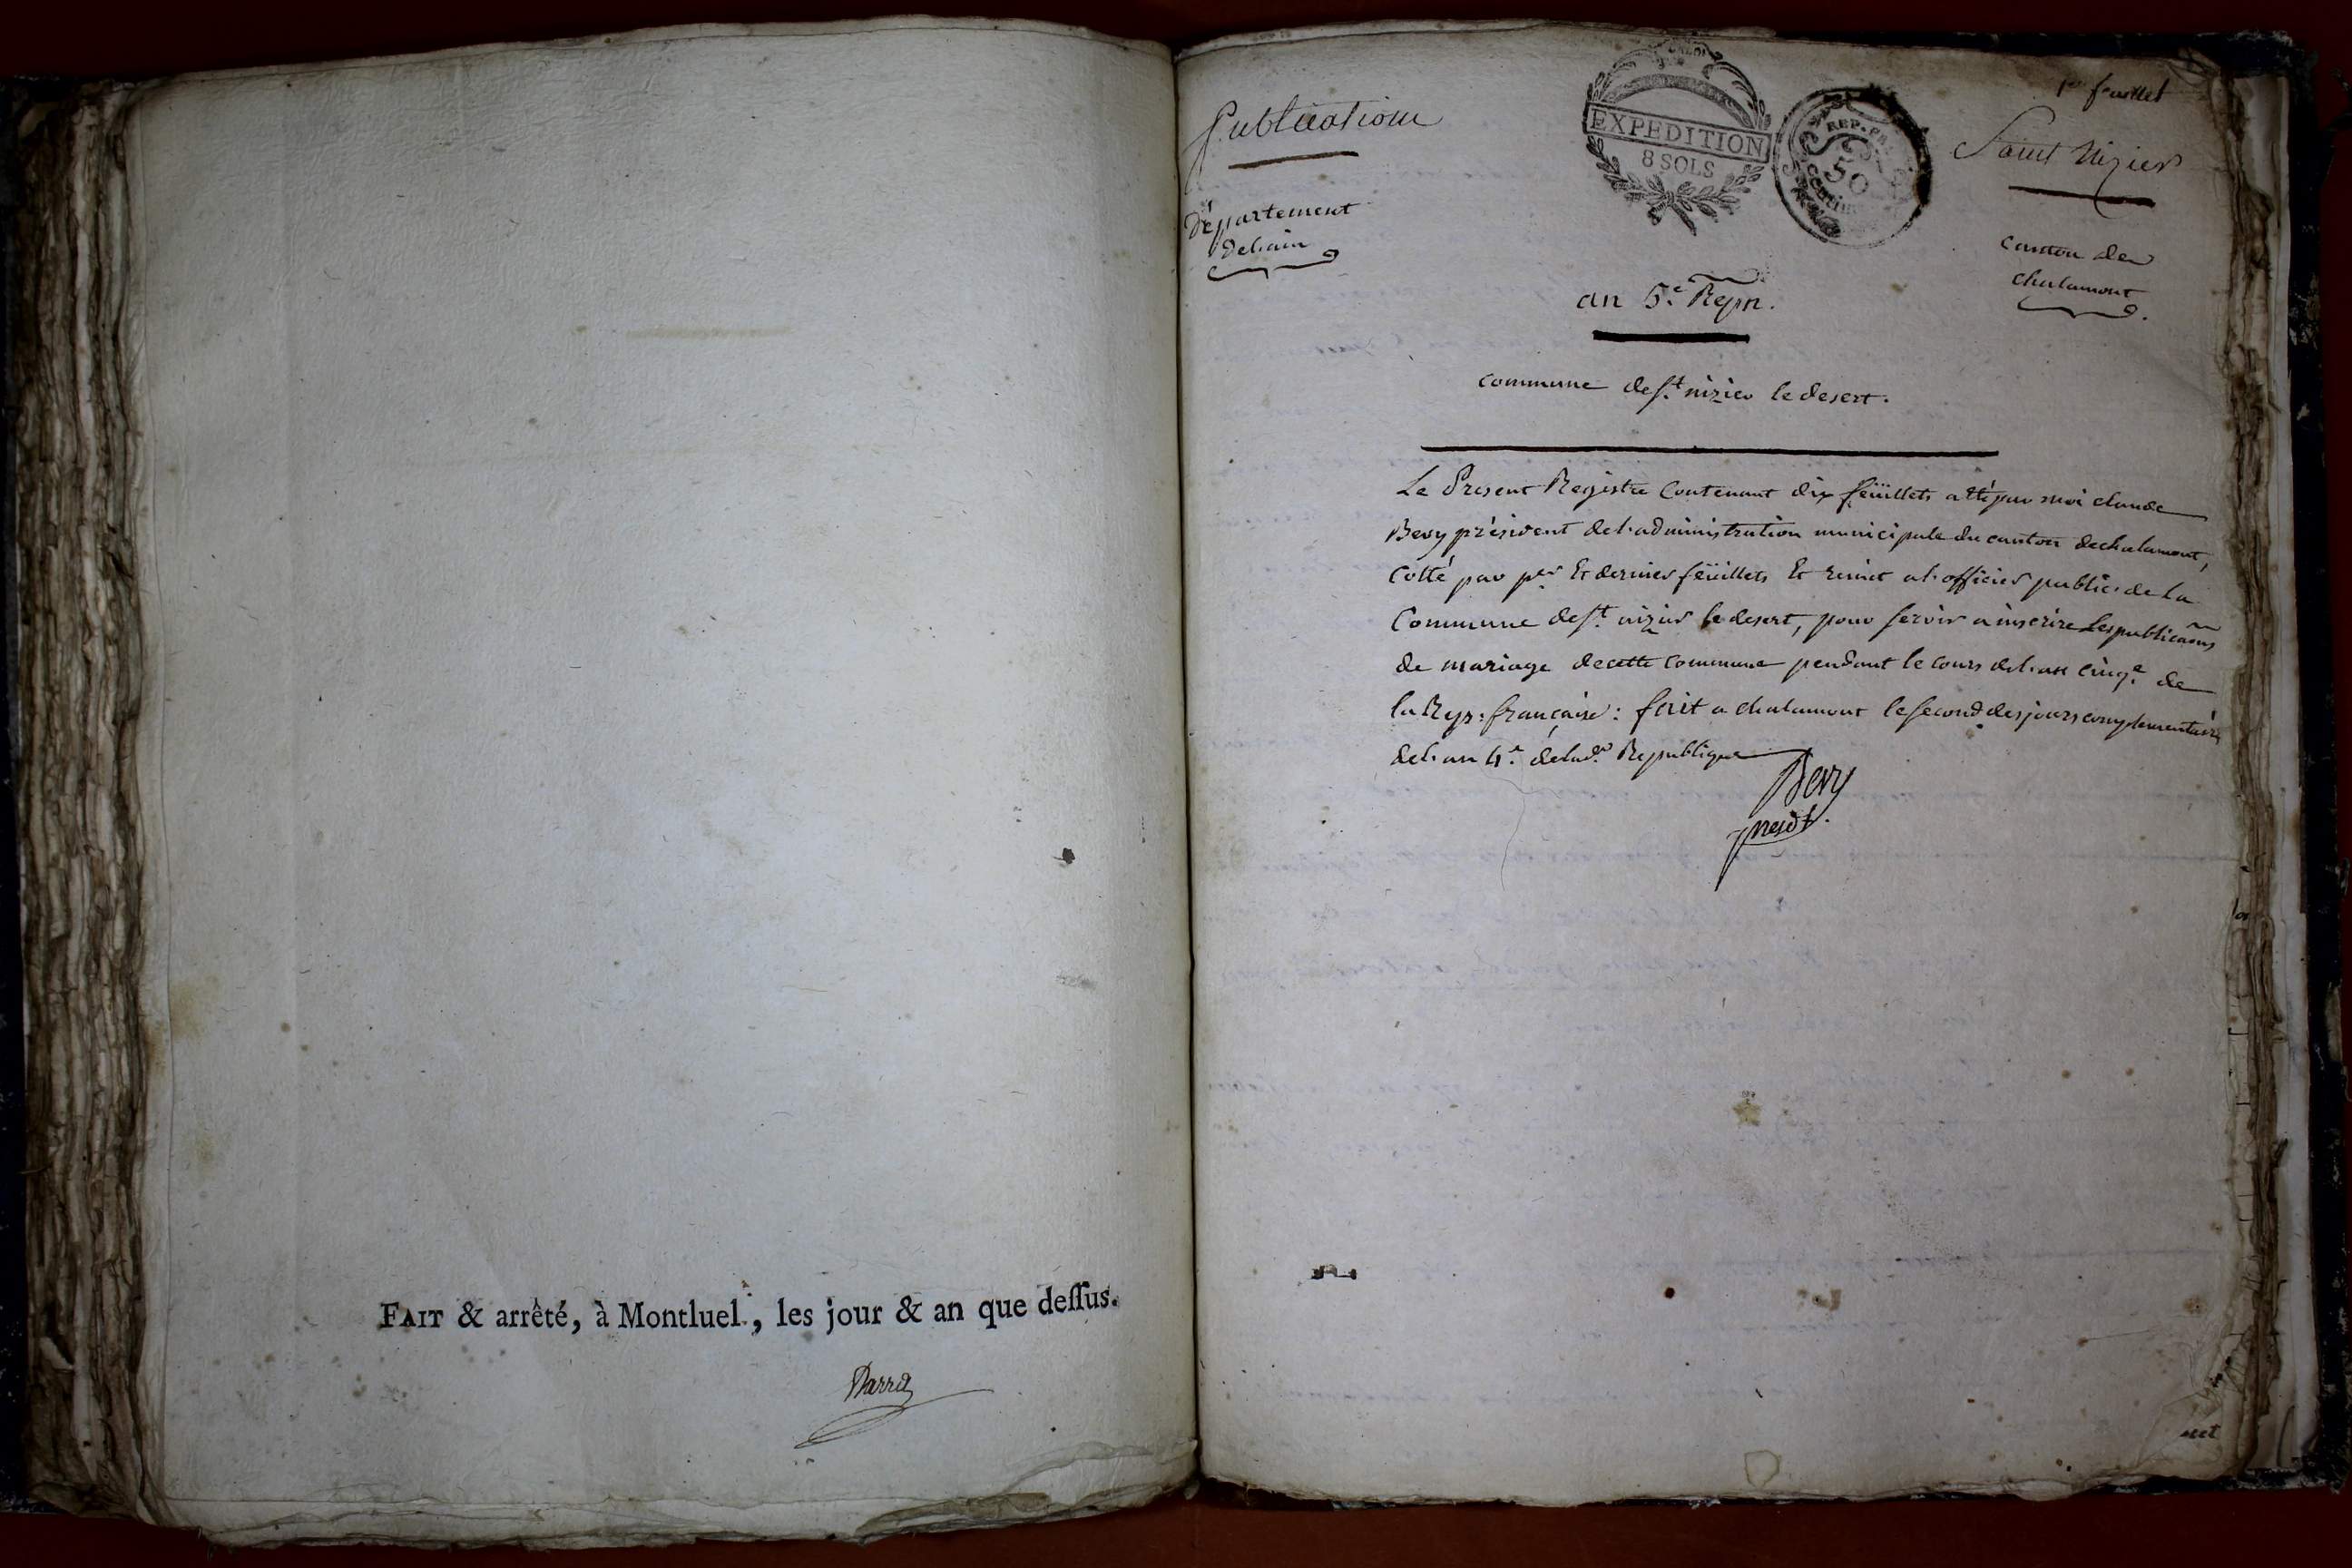 FAIT & arrêté, à Montluel, les jour & an que deſſus.
1er feuillet
Publications
EXPEDITION
8 SOLS
REP.
50
centim
Saint Nizier
département
de l'ain
canton de
chalamont
an 5.e Repn.
commune de st. nizier le desert.
Le Present Registre Contenant dix feüillets a été par moi claude
Bevy présivent de l'administration municipale du canton de chalamont,
Cotté par per. Et dernier feüillets Et remit a l'officier public de la
Commune de st. nizier le desert, pour servir a inscrire Les publicaõns
de mariage de cette commune pendant le cours de l'an cinqe. de
la Rep: française: fait a chalamont le second des jours complementaires
de l'an 4.e de lad.e Republique
Bevy
presdt.